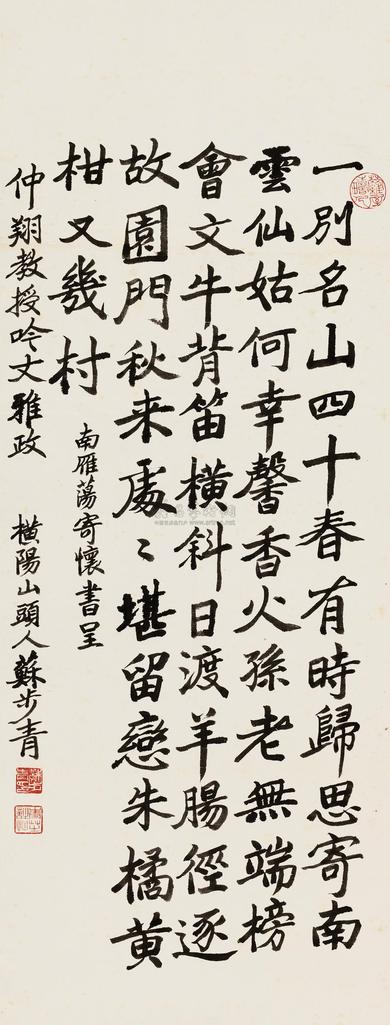 一別名山四十春有時歸思寄南
雲仙姑何幸馨香火孫老無端榜
會文牛背笛橫斜日渡羊腸徑逐
故園門秋来處〻堪留戀朱橘黄
柑又幾村
南雁蕩寄懷書呈
仲翔教授吟丈雅政
橫陽山頭人蘇步青